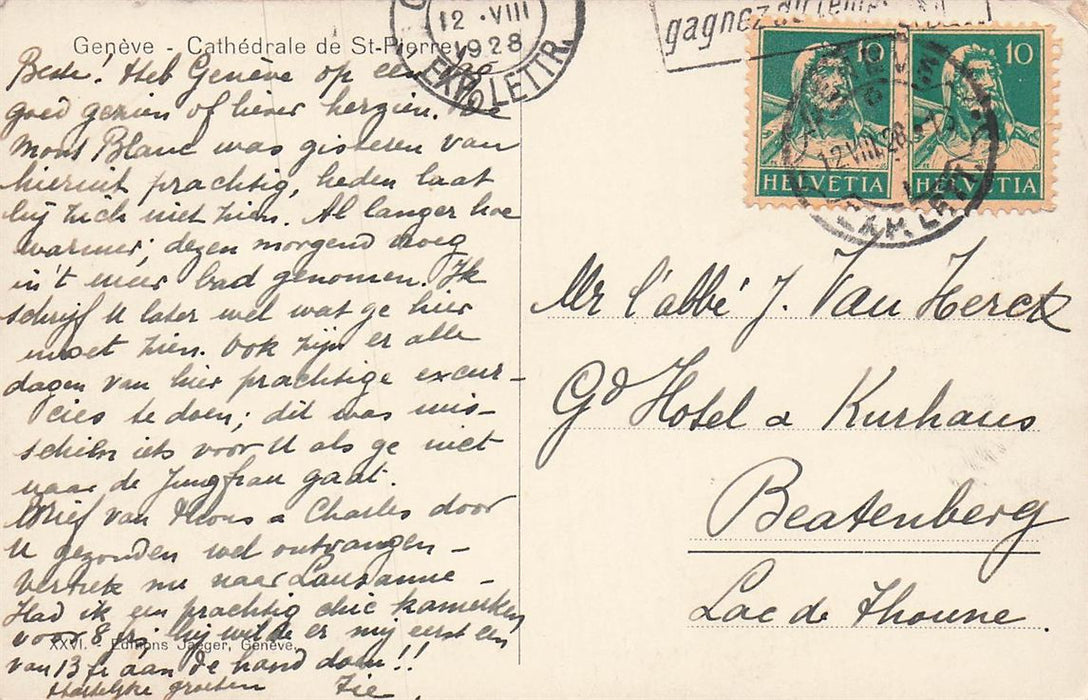 Genève - Cathédrale de St-Pierre
Beste! Heb Genève op een
goed gezien of liever herzien. De
Mont Blanc was gisteren van
hieruit prachtig, heden laat
hij zich niet zien. Al langer hoe
warmer; dezen morgend vroeg
in 't meer bad genomen. Ik
schrijf U later wel wat ge hier
moet zien. Ook zijn er alle
dagen van hier prachtige excur-
cies te doen; dit was mis-
schien iets voor U als ge niet
naar de Jungfrau gaat.
Brief van & Charles door
U gezonden wel ontvangen -
Vertrek nu naar Lausanne -
Had ik een prachtig chic kamerken
voor 8 frs; hij wilde er mij eerst een
van 13 fr aan de hand doen!!
Hartelijke groeten
XXVI. - Editions Jaeger, Genève.
12 · VIII
1928
EXP. LETTR.
gagnez du temps
10
10
HELVETIA
HELVETIA
12.VIII.28
Mr l'abbé J. Van Herck
Gd Hotel & Kurhaus
Beatenberg
Lac de Thoune.